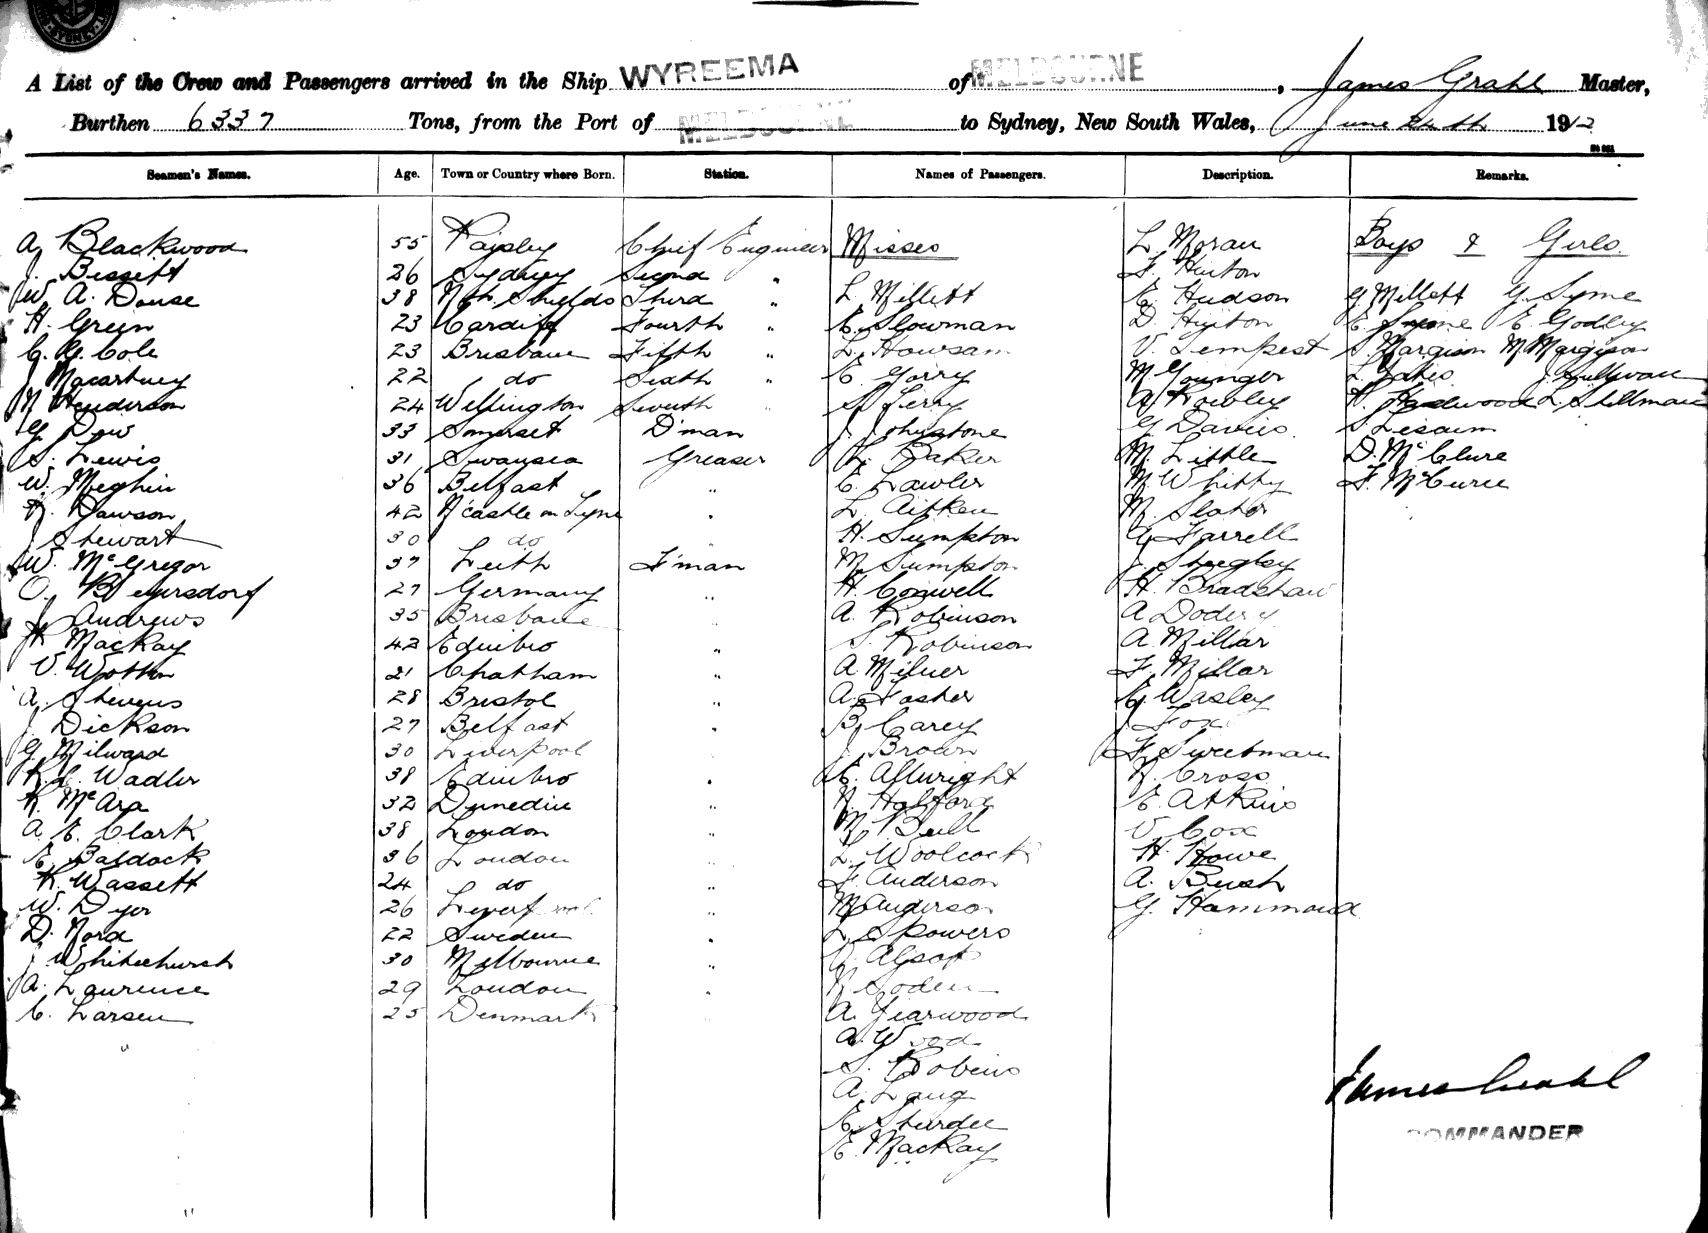 SYDNEY
A List of the Crew and Passengers arrived in the Ship WYREEMA of MELBOURNE, James Grahl Master,
Burthen 6337 Tons, from the Port of MELBOURNE to Sydney, New South Wales, June 24th 1912
Seamen's Names. Age. Town or Country where Born. Station. Names of Passengers. Description. Remarks.
A Blackwood 55 Paisley Chief Engineer Misses L Moran Boys & Girls
J. Bissett 26 Sydney Second " F. Hinton
W. A. Douse 38 Nth. Shields Third " L Millett E. Hudson G Millett G. Syme
H. Green 23 Cardiff Fourth " E. Slowman D. E. Syme E. Godley
C. G. Cole 23 Brisbane Fifth " L. Howsam V. Tempest S. Margison M Margison
J Macartney 22 do Sixth " E. Gorry M Younger L. J. Sullivan
N Henderson 24 Wellington Seventh " S Terry A Rowley L. Stillman
G Dow 33 Somerset D'man J. Johnstone G Davies S
S. Lewis 31 Swansea Greaser L. Baker M. Little D. McClure
W. Meghin 36 Belfast " E. Lawler M Whitty F.
R. Dawson 42 N'castle on Tyne " L. Aitken M. Slater
J Stewart 30 do " H. Sumpton G Farrell
W. McGregor 37 Leith F'man M. Sumpton J.
O. Beyersdorf 27 Germany " H. Coxwell H. Bradshaw
J. Andrews 35 Brisbane " A. Robinson A Dodery
H MacKay 42 Edinbro " S. Robinson A Millar
V. Wotton 21 Chatham " A Milner F. Millar
A. Stevens 28 Bristol " A. Tosher G. Wasley
J. Dickson 27 Belfast " B. Carey J. Fox
G. Milward 30 Liverpool " J. Brown F. Sweetman
R. L. Wadler 38 Edinbro " E. Allwright R. Cross
R. McAra 32 Dunedin " N. Halford E. Atkins
A. E. Clark 38 London " M Bull V. Cox
E. Baldock 36 London " L. Woolcock H. Howe
R. Wassett 24 do " F. Anderson A. Bush
W. Dyer 26 Liverpool " M Anderson G. Hammond
D. Nord 22 Sweden " L. Spowers
J Whitechurch 30 Melbourne " Alsop
A. Laurence 29 London " N Soden
C. Larsen 25 Denmark " A. Yearwood
A. Wood
S. Robens
A. Lang
E. Sturdee
E. MacKay
James Grahl
COMMANDER